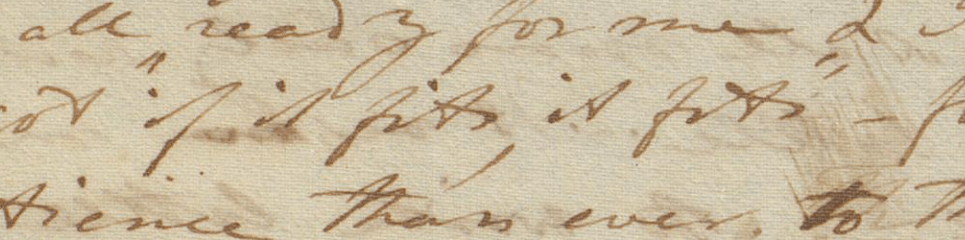 all ready for me &
"if it fits it fits" -
than ever. to